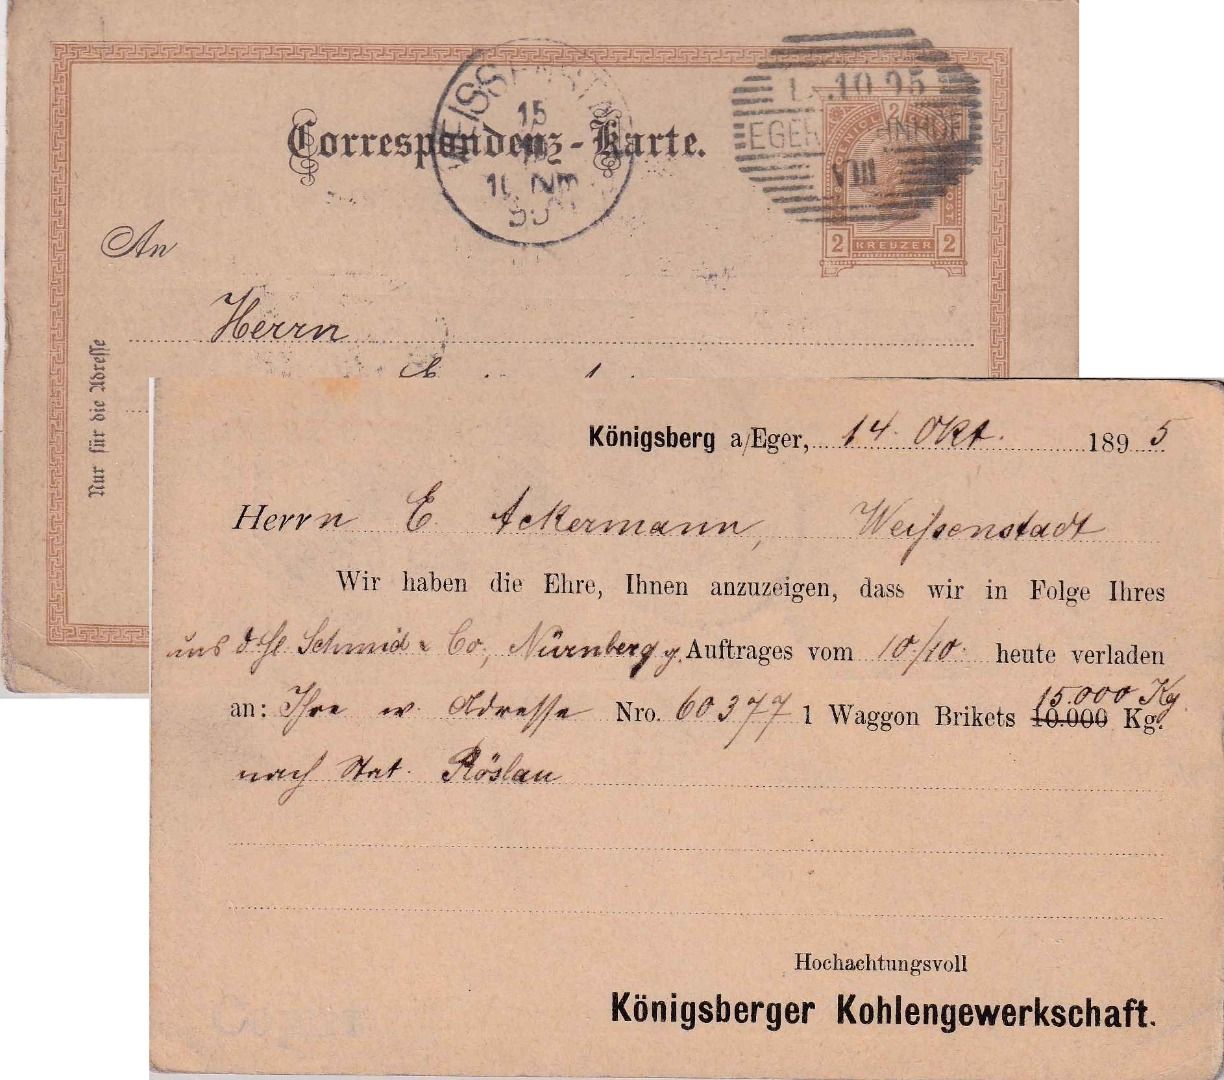 Correspondenz-Karte.
15
10.95
EGER
VIII
2
2 KREUZER 2
An
Herrn
Nur für die Adresse
Königsberg a/Eger, 14. Okt. 1895
Herrn E Ackermann, Weißenstadt
Wir haben die Ehre, Ihnen anzuzeigen, dass wir in Folge Ihres
uns d. Schmid & Co, Nürnberg g. Auftrages vom 10/10. heute verladen
15.000 Kg
an: Ihre w Adresse Nro. 60377 1 Waggon Brikets 10.000 Kg.
nach Stat. Röslau
Hochachtungsvoll
Königsberger Kohlengewerkschaft.